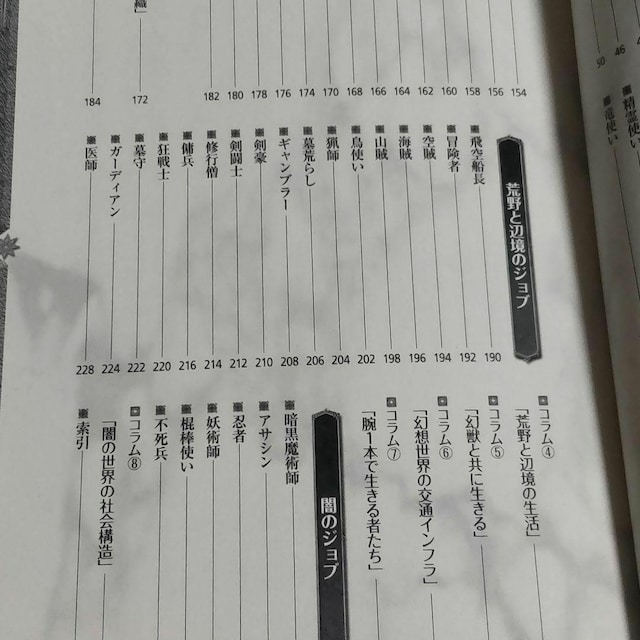 46
50
精霊使い
竜使い
154
156
158
160
162
164
166
168
170
174
176
178
180
182
172
184
荒野と辺境のジョブ
飛空船長 190
冒険者 192
空賊 194
海賊 196
山賊 198
鳥使い 202
猟師 204
墓荒らし 206
ギャンブラー 208
剣豪 210
剣闘士 212
修行僧 214
傭兵 216
狂戦士 220
墓守 222
ガーディアン 224
医師 228
コラム④
「荒野と辺境の生活」
コラム⑤
「幻獣と共に生きる」
コラム⑥
「幻想世界の交通インフラ」
コラム⑦
「腕1本で生きる者たち」
闇のジョブ
暗黒魔術師
アサシン
忍者
妖術師
棍棒使い
不死兵
コラム⑧
「闇の世界の社会構造」
索引